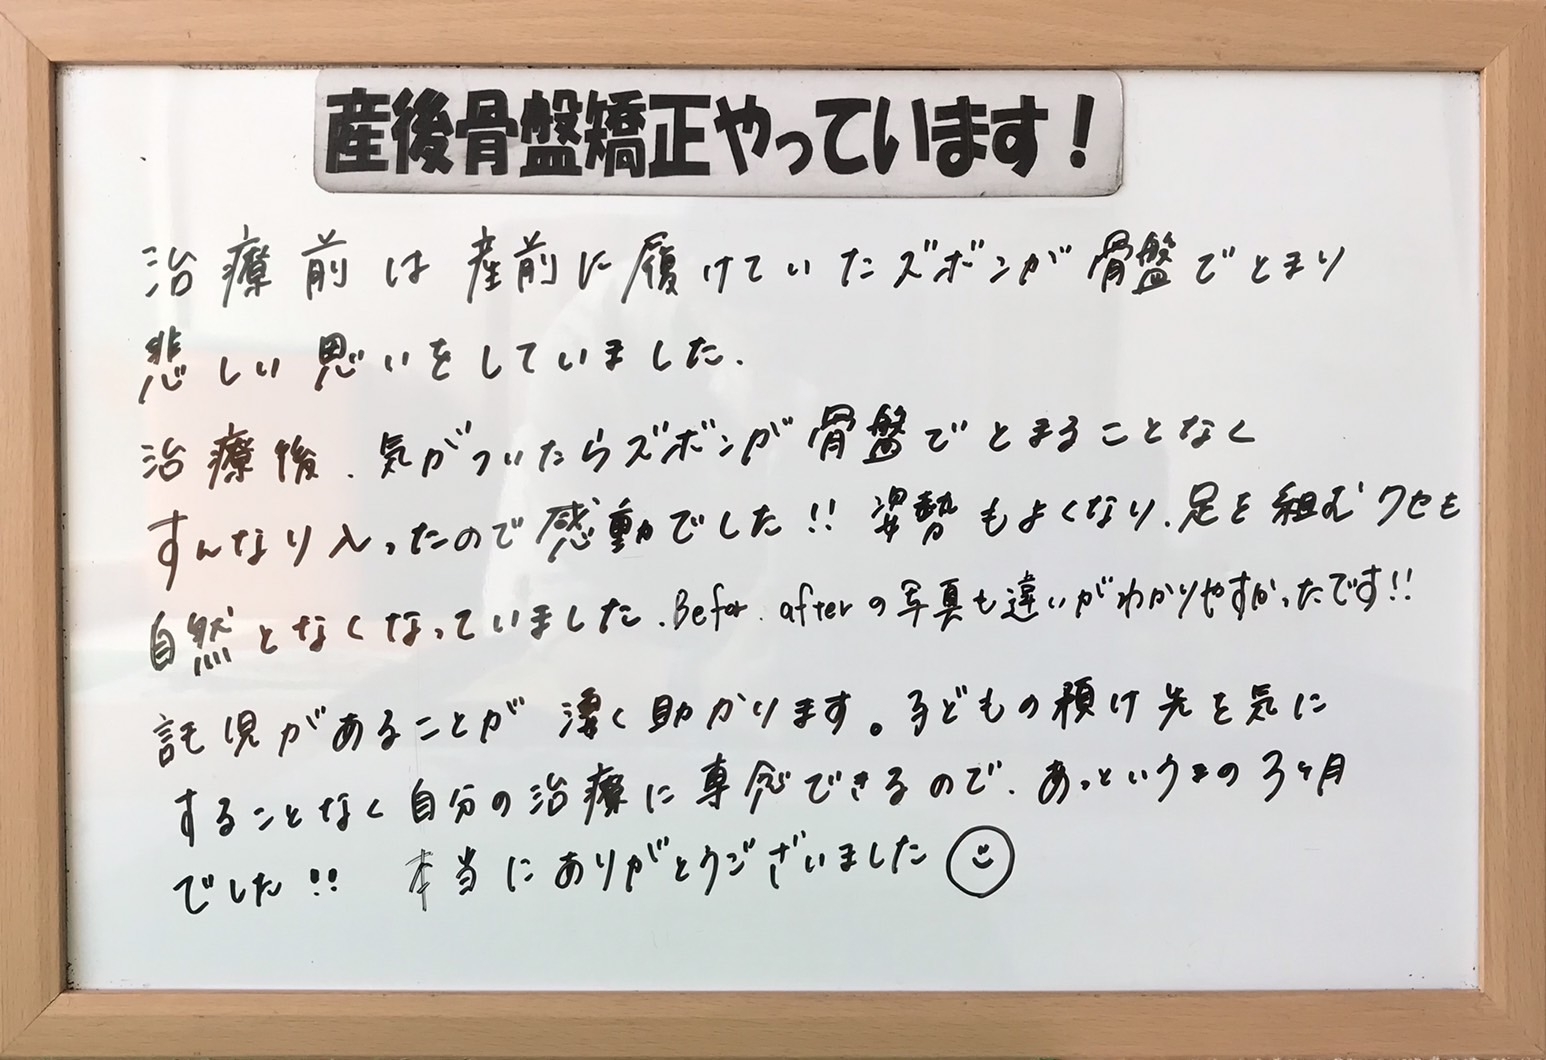 産後骨盤矯正やっています！
治療前は産前に履けていたズボンが骨盤でとまり
悲しい思いをしていました.
治療後、気がついたらズボンが骨盤でとまることなく
すんなり入ったので感動でした!! 姿勢もよくなり、足を組むクセも
自然となくなっていました、Befor. afterの写真も違いがわかりやすかったです!!
託児があることが凄く助かります。子どもの預け先を気に
することなく自分の治療に専念できるので、あっというまの3ヶ月
でした!! 本当にありがとうございました